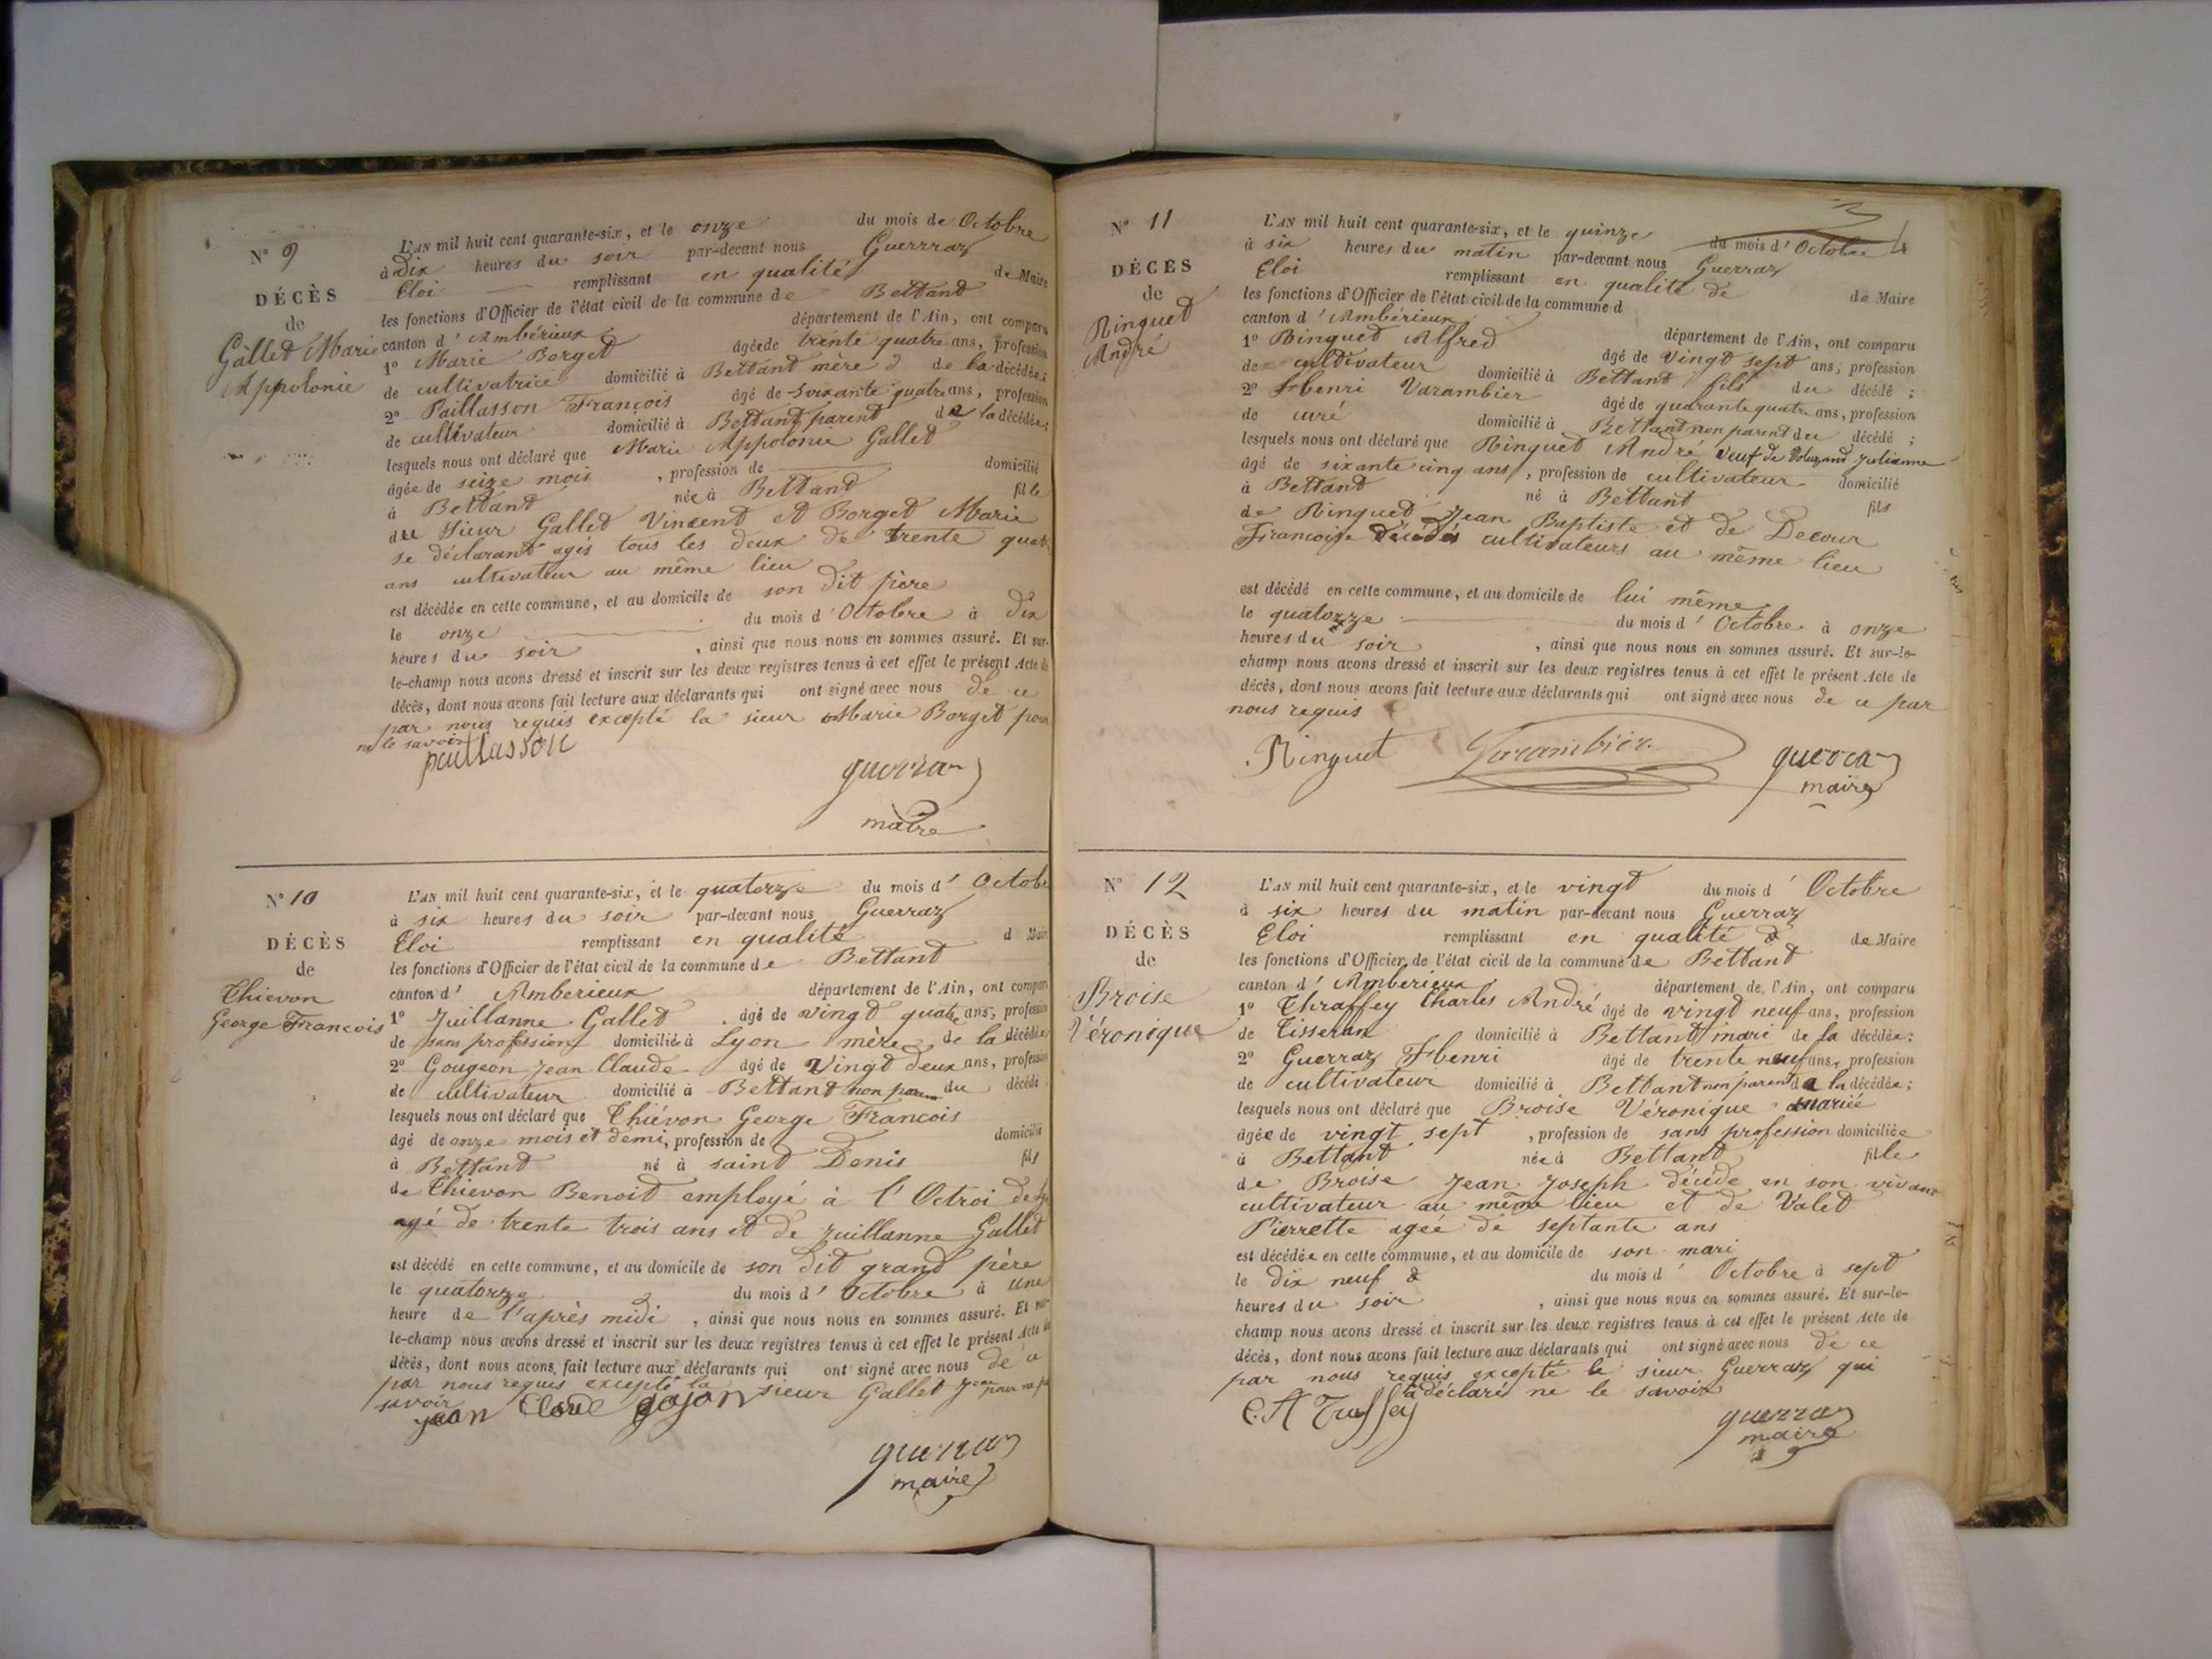 N° 9
DÉCÈS
de
Gallet Marie
Appolonie
L'AN mil huit cent quarante-six, et le onze du mois de Octobre
à Dix heures du soir par-devant nous Guerrraz
Eloi remplissant en qualité de Maire
les fonctions d'Officier de l'état civil de la commune de Bettant
canton d'Ambérieux département de l'Ain, ont comparu
1° Marie Borget âgée de trente quatre ans, profession
de cultivatrice domicilié à Bettant mère de la décédée;
2° Paillasson François âgé de soixante quatre ans, profession
de cultivateur domicilié à Bettant parent de la décédée;
lesquels nous ont déclaré que Marie Appolonie Gallet
âgée de seize mois, profession de domicilié
à Bettant née à Bettant fille
du Sieur Gallet Vincent et Borget Marie
se déclarant agés tous les deux de trente quatr
ans cultivateur au même lieu
est décédée en cette commune, et au domicile de son dit père
le onze du mois d'Octobre à Dix
heures du soir, ainsi que nous nous en sommes assuré. Et sur-
le-champ nous avons dressé et inscrit sur les deux registres tenus à cet effet le présent Acte de
décès, dont nous avons fait lecture aux déclarants qui ont signé avec nous de ce
par nous requis excepté la sieur Marie Borget pour
ne le savoir
paillasson
guerraz
maire
N° 10
DÉCÈS
de
Thievon
George Francois
L'AN mil huit cent quarante-six, et le quatorze du mois d'Octobre
à six heures du soir par-devant nous Guerraz
Eloi remplissant en qualité d Maire
les fonctions d'Officier de l'état civil de la commune de Bettant
canton d'Amberieux département de l'Ain, ont comparu
1° Juillanne Gallet âgé de vingt quatre ans, profession
de sans profession domiciliée à Lyon mère de la décédée
2° Gougeon Jean Claude âgé de Vingt deux ans, profession
de cultivateur domicilié à Bettant non parent du décédé
lesquels nous ont déclaré que Thiévon George Francois
âgé de onze mois et demi, profession de domicilié
à Bettant né à saint Denis fils
de Thievon Benoit employé à l'Octroi de
agé de trente trois ans et de Juillanne Gallet
est décédé en cette commune, et au domicile de son dit grand père
le quatorze du mois d'Octobre à une
heure de l'après midi, ainsi que nous nous en sommes assuré. Et sur-
le-champ nous avons dressé et inscrit sur les deux registres tenus à cet effet le présent Acte de
décès, dont nous avons fait lecture aux déclarants qui ont signé avec nous de ce
par nous requis excepté la sieur Gallet pour ne
savoir
jean Claude gojon
guerraz
maire
N° 11
DÉCÈS
de
Ringuet
André
L'AN mil huit cent quarante-six, et le quinze du mois d'Octobre
à six heures du matin par-devant nous Guerraz
Eloi remplissant en qualité de de Maire
les fonctions d'Officier de l'état civil de la commune d
canton d'Ambérieux département de l'Ain, ont comparu
1° Ringuet Alfred âgé de vingt sept ans, profession
de cultivateur domicilié à Bettant fils du décédé;
2° Henri Varambier âgé de quarante quatre ans, profession
de curé domicilié à Bettant non parent du décédé;
lesquels nous ont déclaré que Ringuet André veuf de Julianne
âgé de sixante cinq ans, profession de cultivateur domicilié
à Bettant né à Bettant fils
de Ringuet Jean Baptiste et de Decour
Francoise décédés cultivateurs au même lieu
est décédé en cette commune, et au domicile de lui même
le quatorze du mois d'Octobre à onze
heures du soir, ainsi que nous nous en sommes assuré. Et sur-le-
champ nous avons dressé et inscrit sur les deux registres tenus à cet effet le présent Acte de
décès, dont nous avons fait lecture aux déclarants qui ont signé avec nous de ce par
nous requis
Ringuet Varambier guerraz
maire
N° 12
DÉCÈS
de
Broise
Véronique
L'AN mil huit cent quarante-six, et le vingt du mois d'Octobre
à six heures du matin par-devant nous Guerraz
Eloi remplissant en qualité de Maire
les fonctions d'Officier de l'état civil de la commune de Bettant
canton d'Amberieux département de l'Ain, ont comparu
1° Thraffey Charles André âgé de vingt neuf ans, profession
de Tisseran domicilié à Bettant mari de la décédée;
2° Guerraz Henri âgé de trente neuf ans, profession
de cultivateur domicilié à Bettant non parent de la décédée;
lesquels nous ont déclaré que Broise Véronique mariée
âgée de vingt sept, profession de sans profession domiciliée
à Bettant née à Bettant fille
de Broise Jean Joseph décédé en son vivant
cultivateur au même lieu et de Valet
Pierrette agée de septante ans
est décédée en cette commune, et au domicile de son mari
le dix neuf du mois d'Octobre à sept
heures du soir, ainsi que nous nous en sommes assuré. Et sur-le-
champ nous avons dressé et inscrit sur les deux registres tenus à cet effet le présent Acte de
décès, dont nous avons fait lecture aux déclarants qui ont signé avec nous de ce
par nous requis excepté le sieur Guerraz qui
a déclaré ne le savoir
guerraz
maire